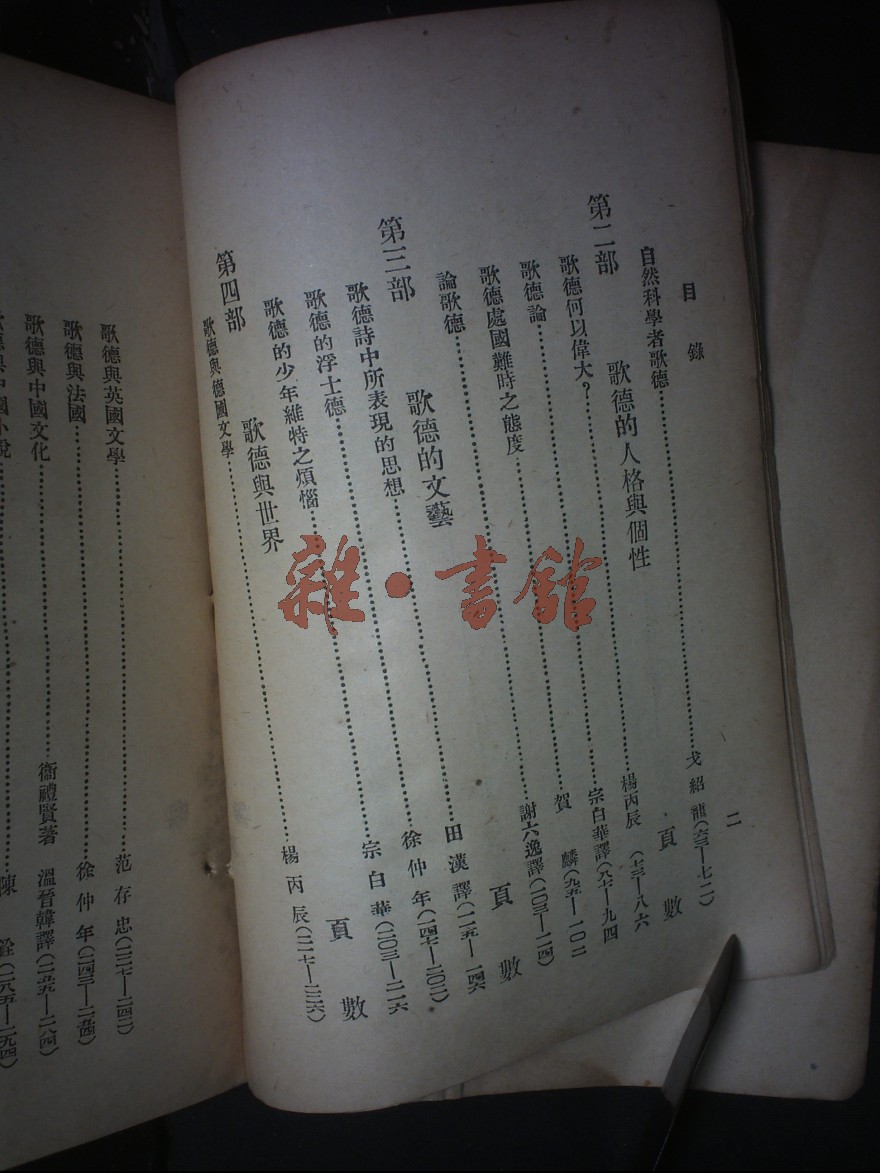 目錄 二
自然科學者歌德……戈紹龍(六三—七二)
第二部 歌德的人格與個性 頁數
歌德何以偉大?……楊丙辰(七三—八六
歌德論……宗白華譯(八七—九四
歌德處國難時之態度……賀麟(九五—一〇二
論歌德……謝六逸譯(一〇三—一二四)
第三部 歌德的文藝 頁數
歌德詩中所表現的思想……田漢譯(一二五—一四六
歌德的浮士德……徐仲年(一四七—二〇二)
歌德的少年維特之煩惱……宗白華(二〇三—二一六
第四部 歌德與世界 頁數
歌德與德國文學……楊丙辰(二一七—二二六)
歌德與英國文學……范存忠(二二七—二四二)
歌德與法國……徐仲年(二四三—二五四)
歌德與中國文化……衞禮賢著 溫晉韓譯(二五五—二八四)
歌德與中國小說……陳銓(二八五—二九四)
雜·書館